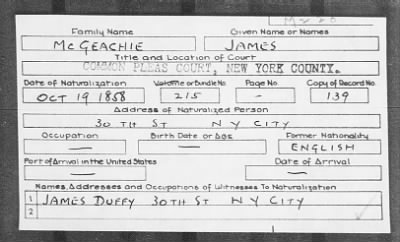 M220
Family Name Given Name or Names
McGEACHIE JAMES
Title and Location of Court
COMMON PLEAS COURT, NEW YORK COUNTY.
Date of Naturalization Volume or Bundle No. Page No. Copy of Record No.
OCT 19 1858 215 - 139
Address of Naturalized Person
30 TH ST N Y CITY
Occupation Birth Date or Age Former Nationality
— — ENGLISH
Port of Arrival in the United States Date of Arrival
— —
Names, Addresses and Occupations of Witnesses To Naturalization
1 JAMES DUFFY 30TH ST N Y CITY
2